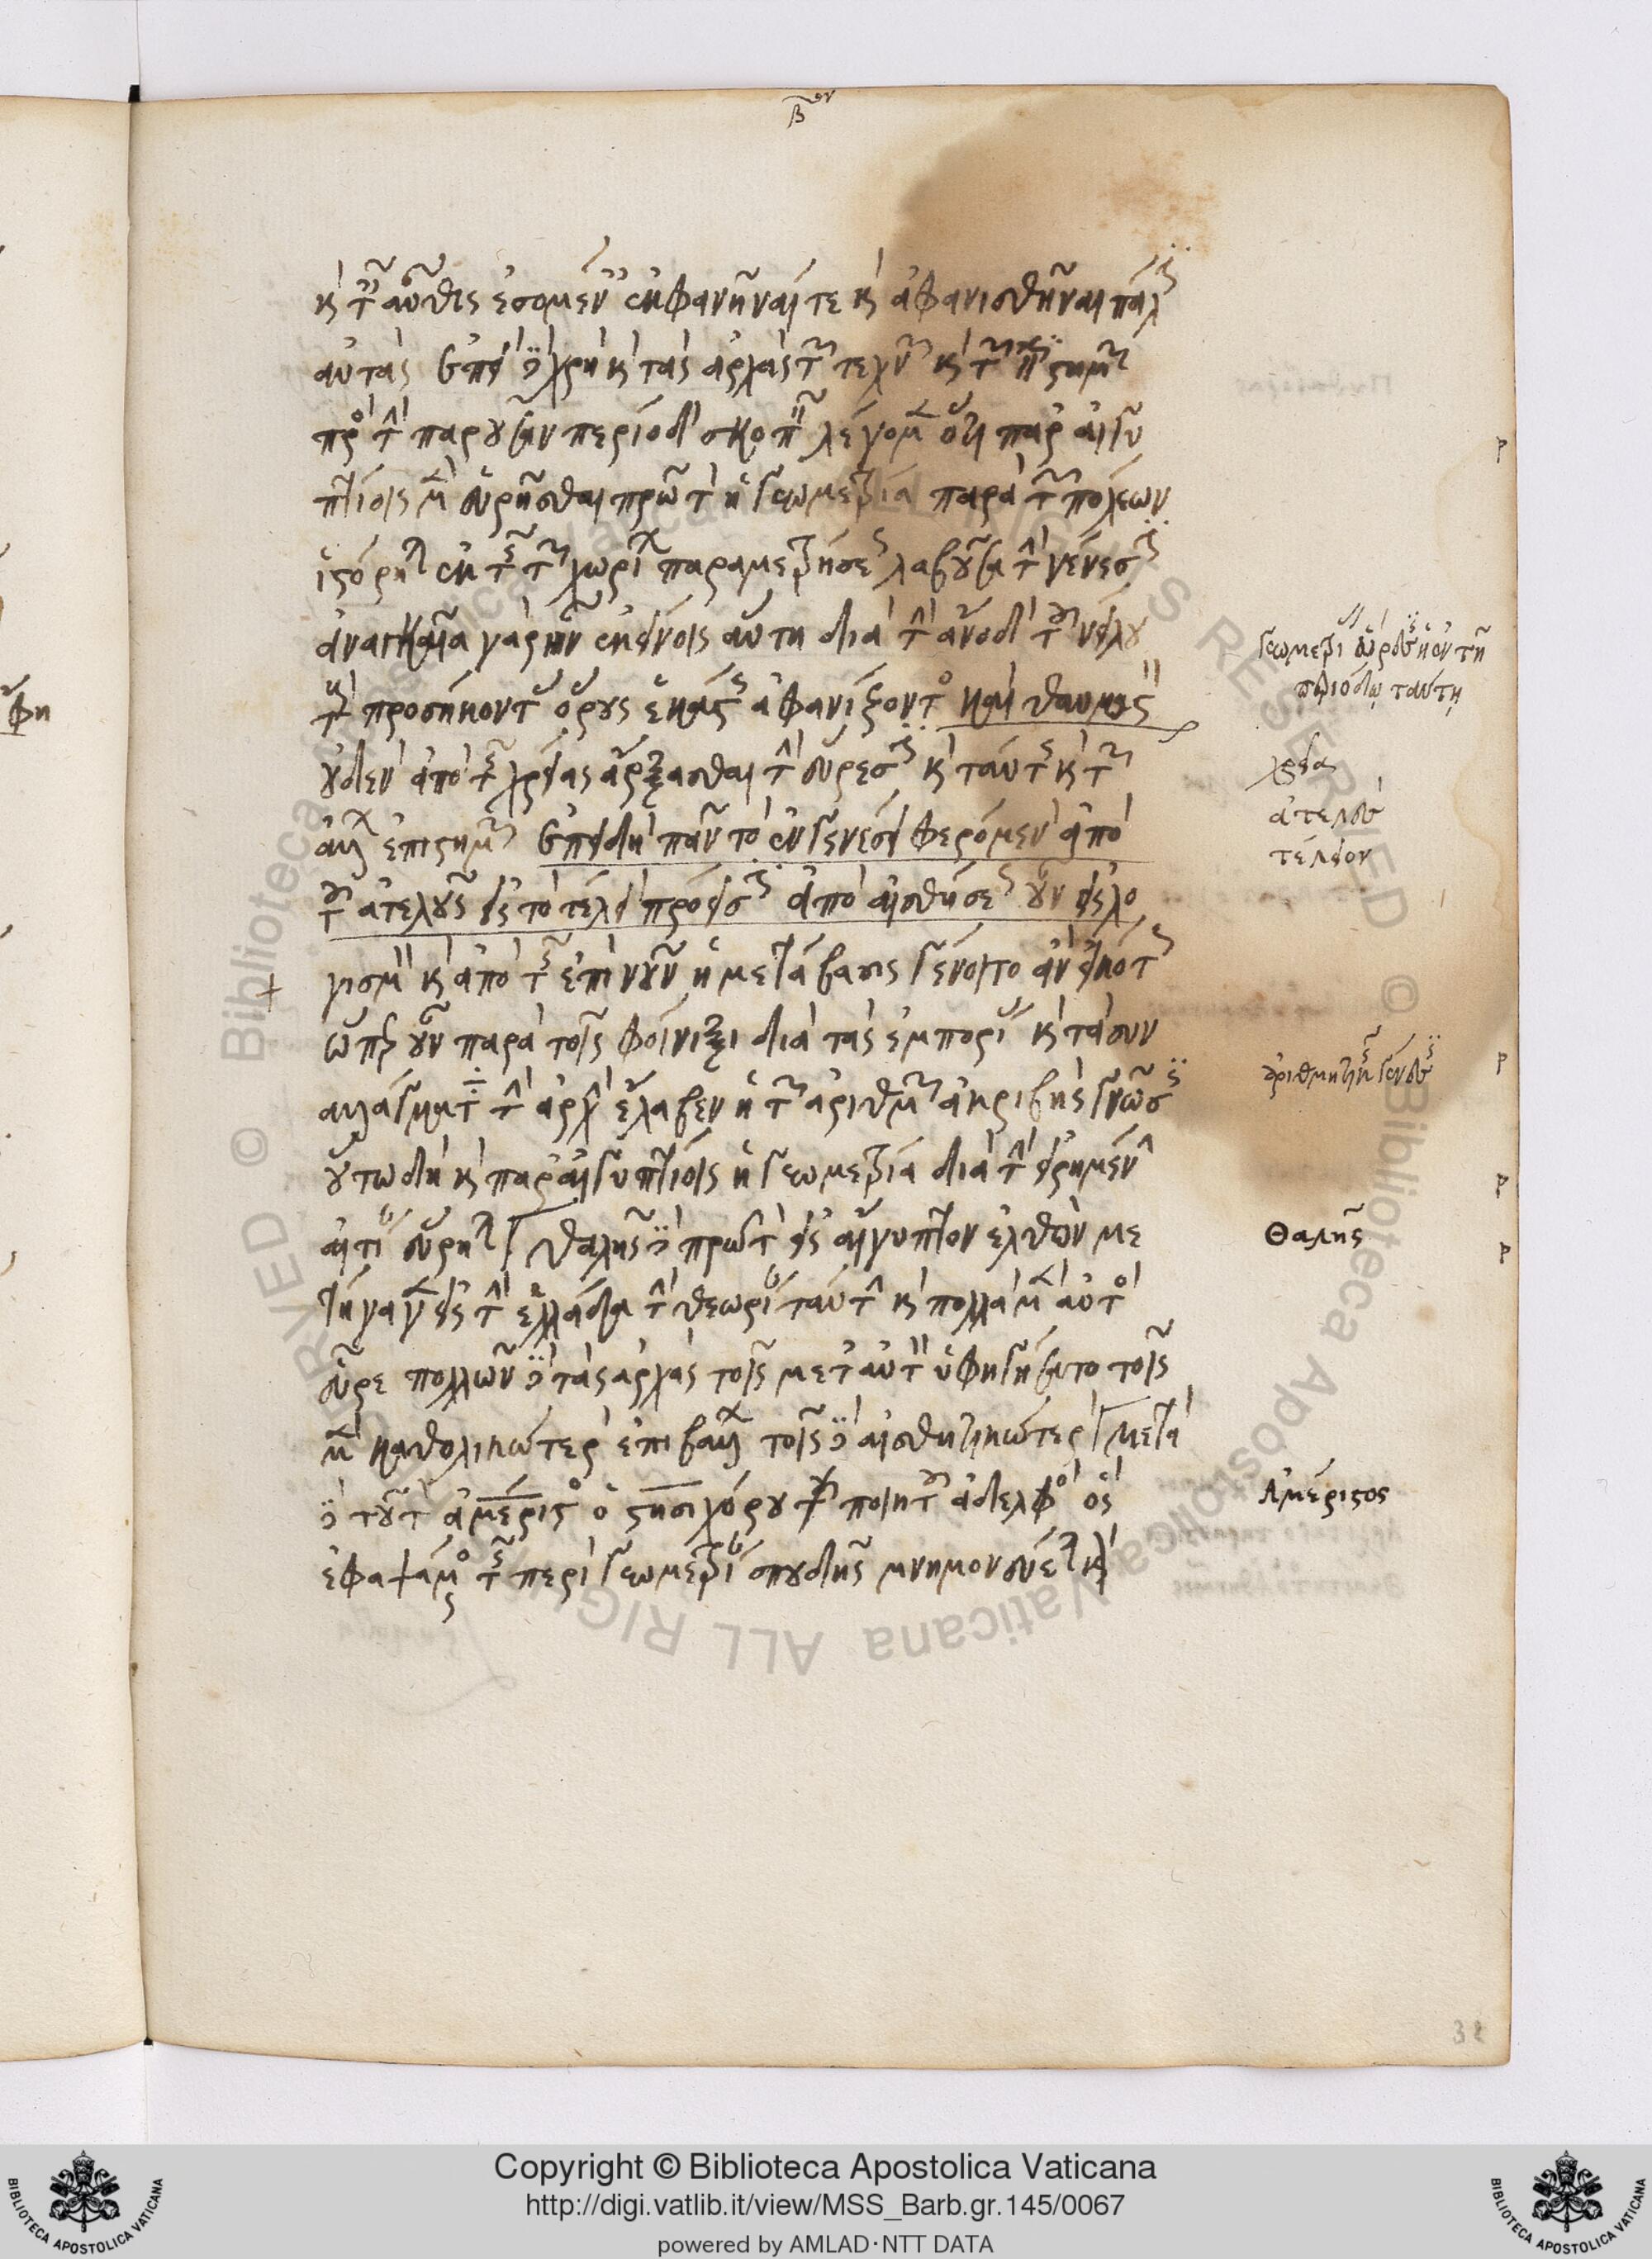 βον
καὶ τῶν αὖθις ἐσομένων ἐκφανῆναί τε καὶ ἀφανισθῆναι πάλιν
αὐτάς ἐπεὶ δὲ χρὴ καὶ τὰς ἀρχὰς τῶν τεχνῶν καὶ τῶν ἐπιστημῶν
πρὸς τὴν παροῦσαν περίοδον σκοπεῖν λέγομεν ὅτι παρ' αἰγυ
πτίοις μὲν εὑρῆσθαι πρῶτον ἡ γεωμετρία παρὰ τῶν πολέων
ἱστόρηται ἐκ τῆς τῶν χωρίων παραμετρήσεως λαβοῦσα τὴν γένεσιν
ἀναγκαῖα γὰρ ἦν ἐκείνοις αὕτη διὰ τὴν ἄνοδον τοῦ νείλου
τοὺς προσήκοντας ὅρους ἑκάστοις ἀφανίζοντος καὶ θαυμαστὸν
οὐδὲν ἀπὸ τῆς χρείας ἄρξασθαι τὴν εὕρεσιν καὶ ταύτης καὶ τῶν
ἄλλων ἐπιστημῶν ἐπειδὴ πᾶν τὸ ἐν γενέσει φερόμενον ἀπὸ
τοῦ ἀτελοῦς εἰς τὸ τέλειον πρόεισιν ἀπὸ αἰσθήσεως οὖν εἰς λο
γισμὸν καὶ ἀπὸ τούτου ἐπὶ νοῦν ἡ μετάβασις γένοιτο ἂν εἰκότως
ὥσπερ οὖν παρὰ τοῖς φοίνιξι διὰ τὰς ἐμπορίας καὶ τὰ συν
αλλάγματα τὴν ἀρχὴν ἔλαβεν ἡ τῶν ἀριθμῶν ἀκριβὴς γνῶσις
οὕτω δὴ καὶ παρ' αἰγυπτίοις ἡ γεωμετρία διὰ τὴν εἰρημένην
αἰτίαν εὕρηται θαλῆς δὲ πρῶτον εἰς αἴγυπτον ἐλθὼν με
τήγαγεν εἰς τὴν ἑλλάδα τὴν θεωρίαν ταύτην καὶ πολλὰ μὲν αὐτὸς
εὗρε πολλῶν δὲ τὰς ἀρχὰς τοῖς μετ' αὐτὸν ὑφηγήσατο τοῖς
μὲν καθολικώτερον ἐπιβάλλων τοῖς δὲ αἰσθητικώτερον μετὰ
δὲ τοῦτον ἀμέριστος ὁ στησιχόρου τοῦ ποιητοῦ ἀδελφὸς ὃς
ἐφαψάμενος τῆς περὶ γεωμετρίαν σπουδῆς μνημονεύεται καὶ
χρεία
ἀτελοῦς
τέλειον
Θαλῆς
Ἀμέριστος
32
Copyright © Biblioteca Apostolica Vaticana
http://digi.vatlib.it/view/MSS_Barb.gr.145/0067
powered by AMLAD·NTT DATA